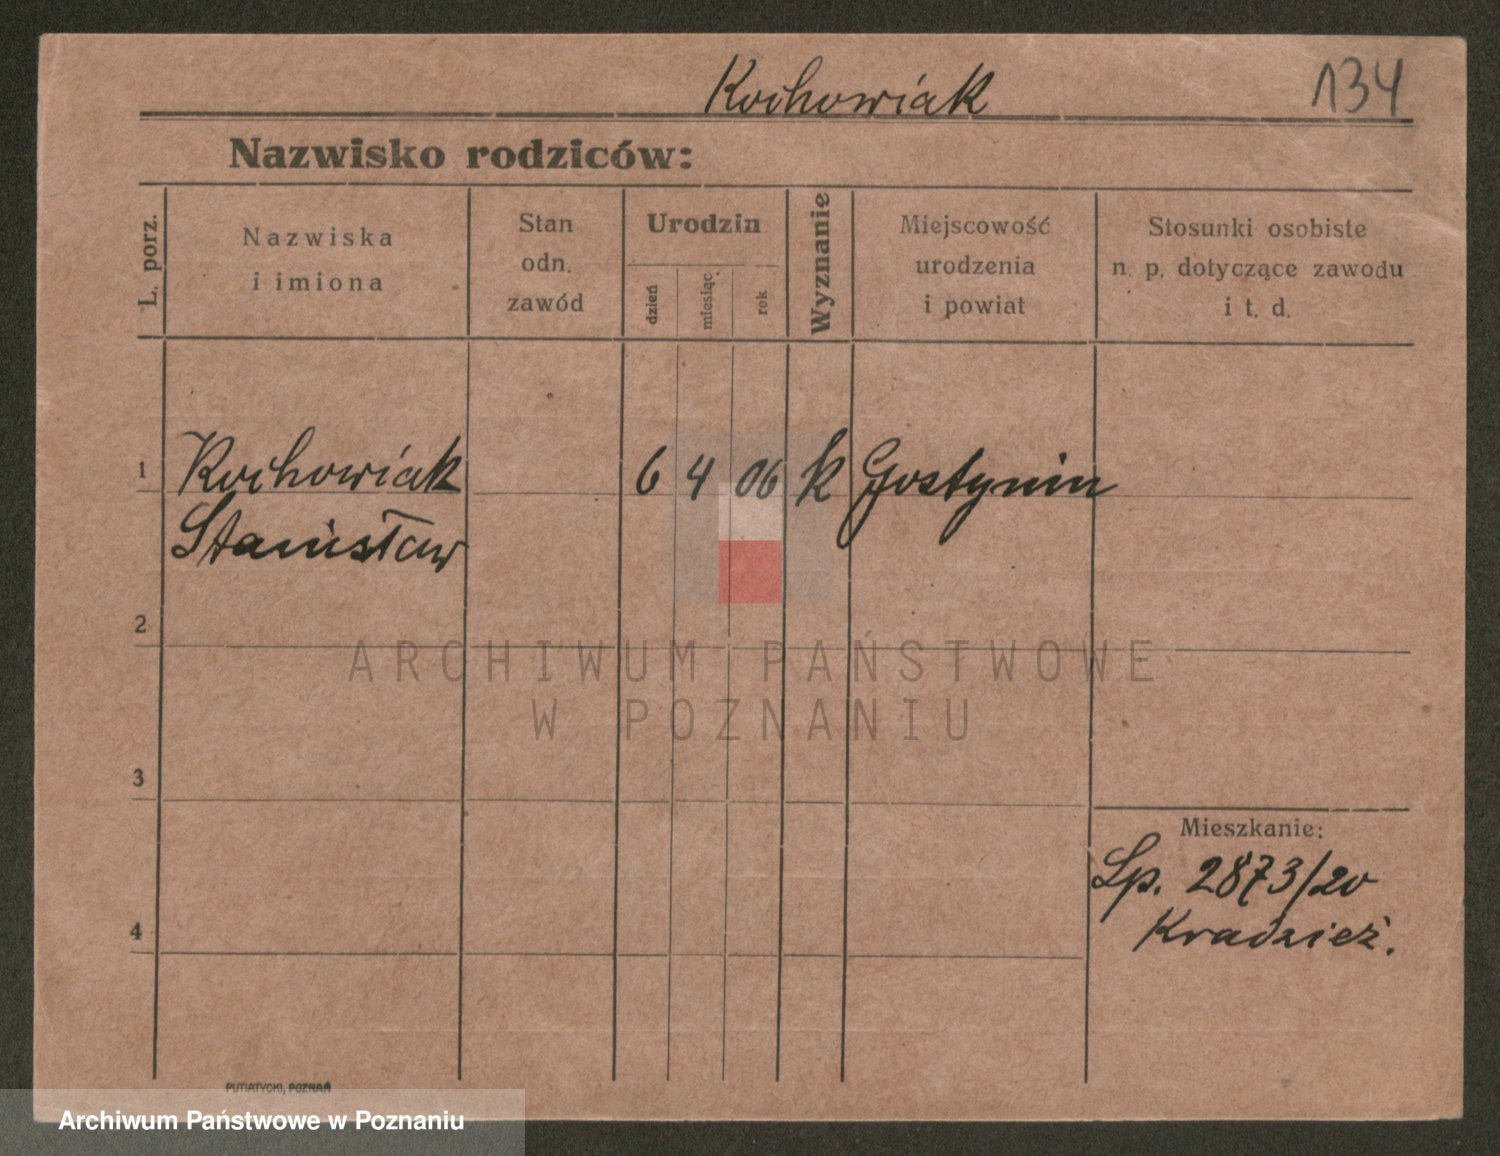 Kochowiak
134
Nazwisko rodziców:
L. porz.
Nazwiska
i imiona
Stan
odn.
zawód
Urodzin
dzień
miesiąc
rok
Wyznanie
Miejscowość
urodzenia
i powiat
Stosunki osobiste
n. p. dotyczące zawodu
i t. d.
1 Kochowiak 6 4 06 k Gostynin
Stanisław
2
ARCHIWUM PAŃSTWOWE
W POZNANIU
3
Mieszkanie:
Lp. 2873/20
4 Kradzież.
PUTIATYCKI, POZNAŃ
Archiwum Państwowe w Poznaniu